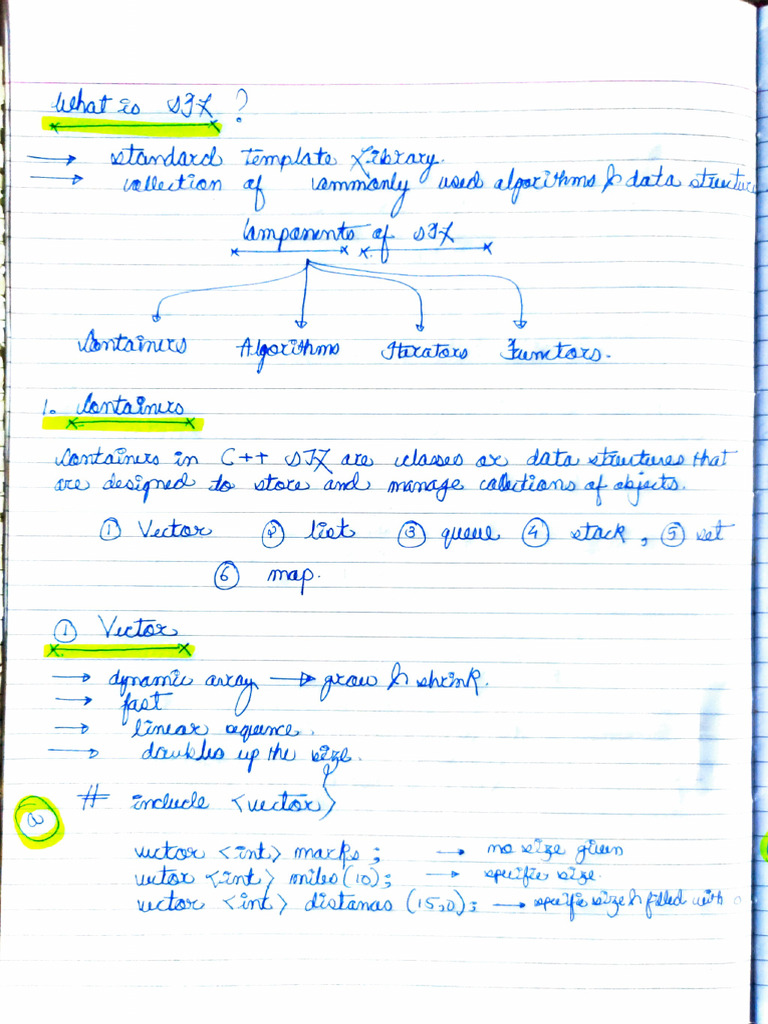 What is STL ?
→ standard Template Library.
→ collection of commonly used algorithms & data structure
Components of STL
Containers Algorithms Iterators Functors.
1. Containers
Containers in C++ STL are classes or data structures that
are designed to store and manage collections of objects.
① Vector ② list ③ queue ④ stack, ⑤ set
⑥ map.
① Vector
→ dynamic array → grow & shrink.
→ fast
→ linear sequence.
→ doubles up the size.
a # include <vector>
vector <int> marks ; → no size given
vector <int> miles (10); → specific size.
vector <int> distances (15,0); → specific size & filled with